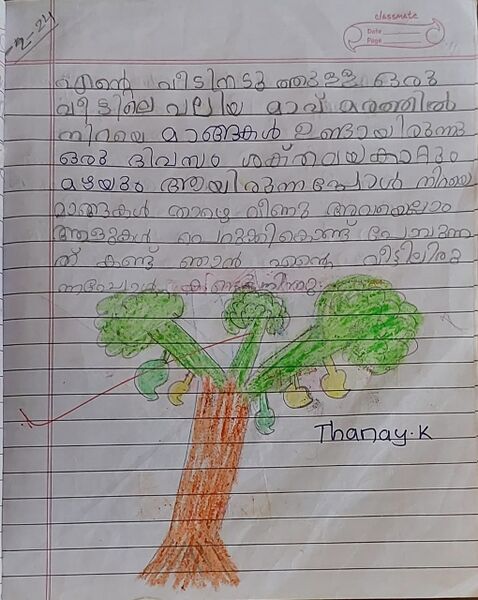 -2-24
classmate
Date
Page
എന്റെ വീട്ടിനടുത്തുള്ള ഒരു
വീട്ടിലെ വലിയ മാവ് മരത്തിൽ
നിറയെ മാങ്ങകൾ ഉണ്ടായിരുന്നു
ഒരു ദിവസം ശക്തമായകാറ്റും
മഴയും ആയിരുന്നപ്പോൾ നിറയെ
മാങ്ങകൾ താഴെ വീണു അവയെല്ലാം
ആളുകൾ പെറുക്കികൊണ്ട് പോവുന്ന
ത് കണ്ട് ഞാൻ എന്റെ വീട്ടിലിരു
ന്നപ്പോൾ
Thanay.K